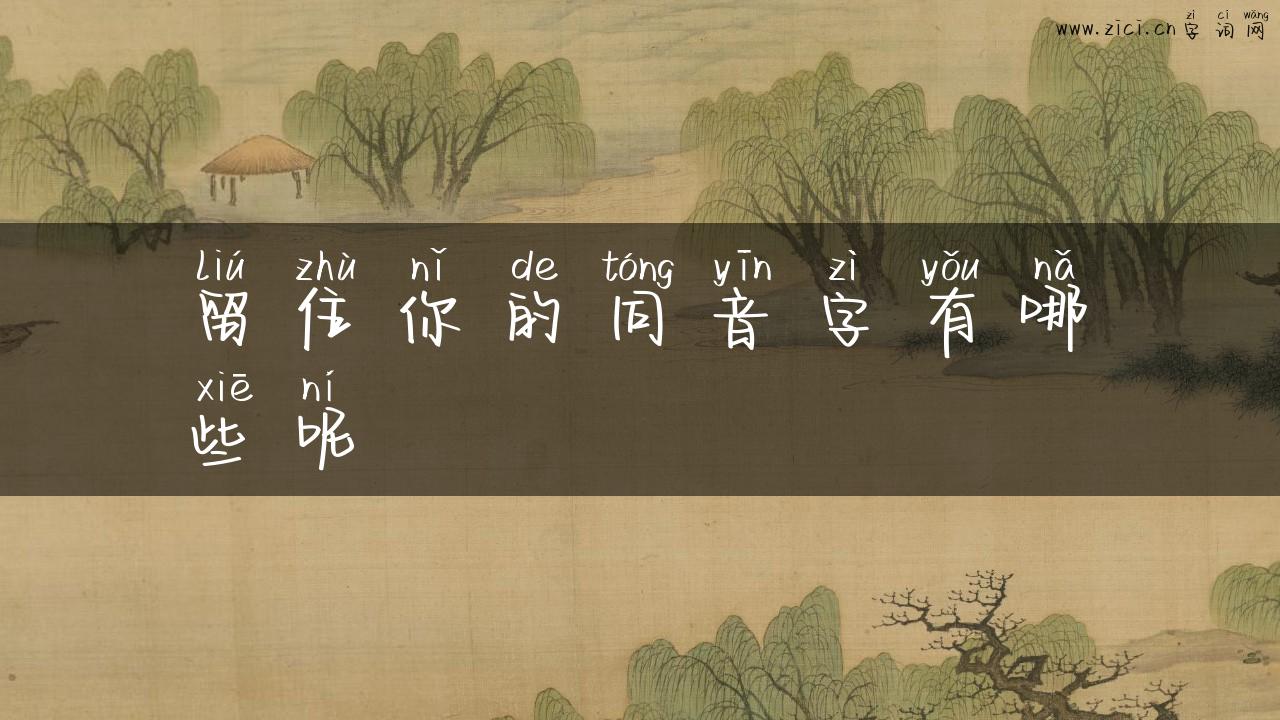 zì cí wǎng
www.zici.cn 字词网
liú zhù nǐ de tóng yīn zì yǒu nǎ
留住你的同音字有哪
xiē ní
些呢